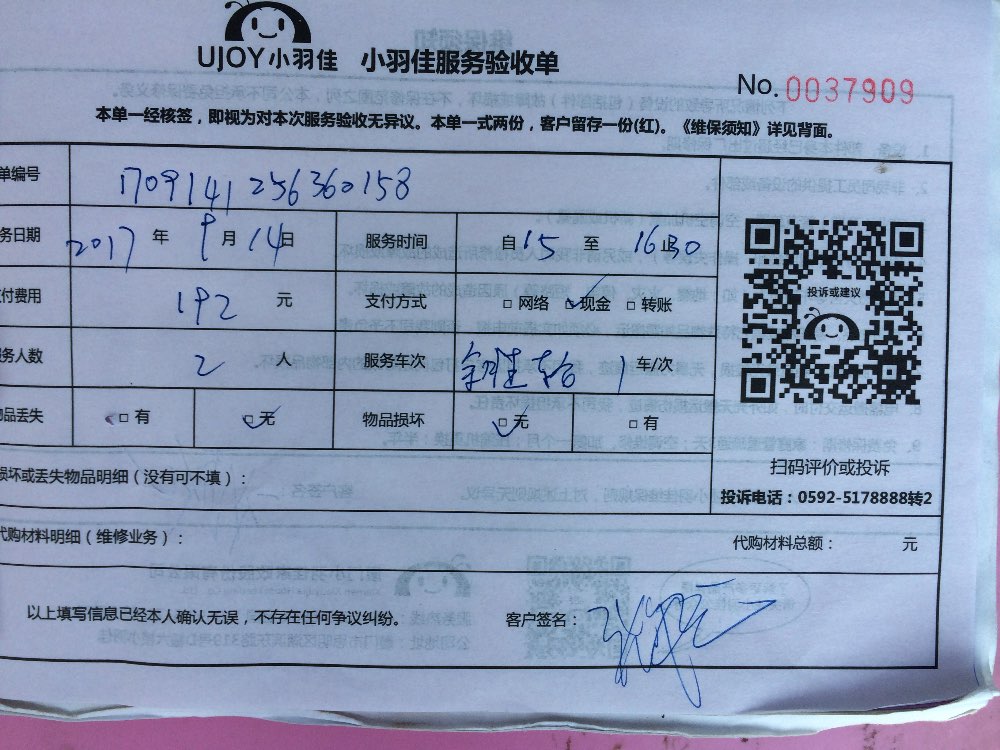 UJOY小羽佳 小羽佳服务验收单
No. 0037909
本单一经核签，即视为对本次服务验收无异议。本单一式两份，客户留存一份(红)。《维保须知》详见背面。
单编号 1709141256360158
务日期 2017 年 9 月 14 日 服务时间 自 15 至 16 止30
付费用 192 元 支付方式 □ 网络 □ 现金 □ 转账
务人数 2 人 服务车次 1 车/次
品丢失 □ 有 □ 无 物品损坏 □ 无 □ 有
投诉或建议
扫码评价或投诉
投诉电话：0592-5178888转2
损坏或丢失物品明细（没有可不填）：
代购材料明细（维修业务）： 代购材料总额： 元
以上填写信息已经本人确认无误，不存在任何争议纠纷。 客户签名：